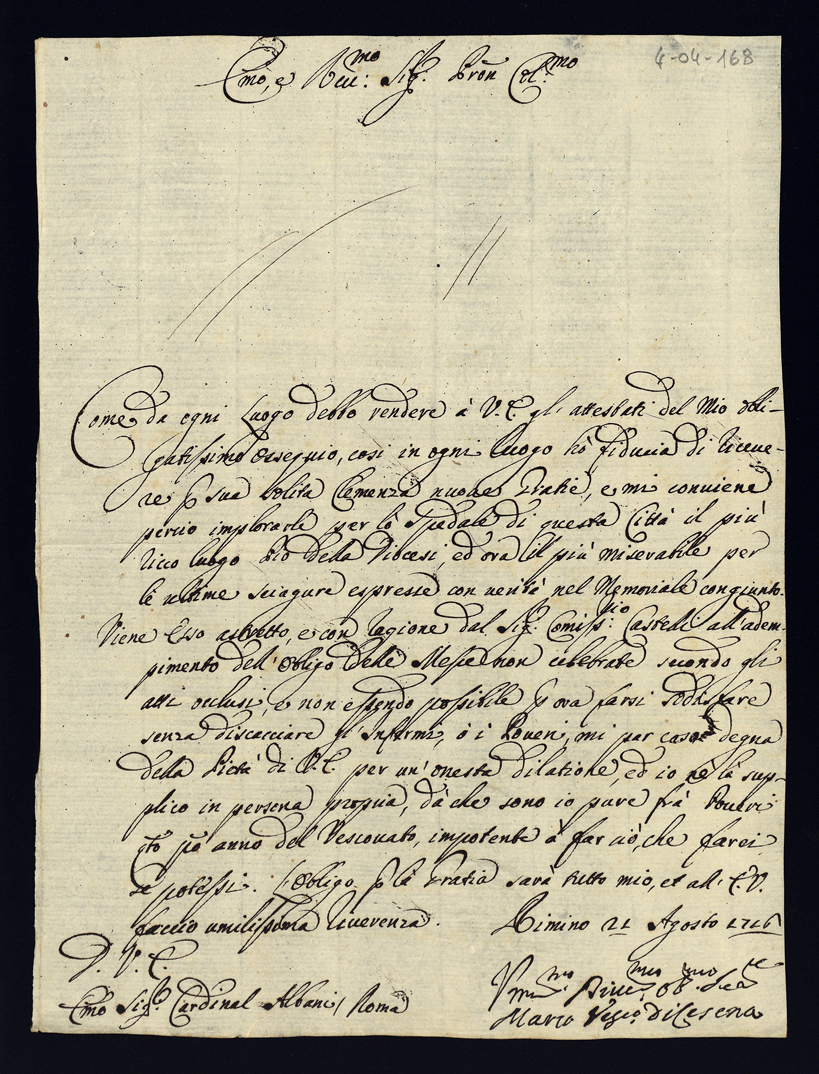 4-04-168
Emo, e Rmo: Sig. Pron Colmo
Come da ogni luogo debbo rendere à V. E. gl' attestati del Mio obli-
gatissimo ossequio, così in ogni luogo hò fiducia di riceve-
re p sua solita Clemenza nuove gratie, e mi conviene
perciò implorarle per lo Spedale di questa Città il più
ricco luogo Pio della Diocesi, ed ora il più miserabile per
le ultime sciagure espresse con verità nel Memoriale congiunto.
Viene esso astretto, e con ragione dal Sig. Comissrio Castelli all'adem-
pimento dell' obligo delle Messe non celebrate secondo gli
atti occlusi, e non essendo possibile p ora farsi sodisfare
senza discacciare gl' Infermi, ò i Poveri, mi par caso degna
della Pietà di V. E. per un' onesta dilatione, ed io ne la sup-
plico in persona propria, dà che sono io pure frà Poveri
qto po anno del Vescovato, impotente à far ciò, che farei
se potessi. L'obligo p la gratia sarà tutto mio, et all' E. V.
faccio umilissima riverenza. Rimino 21 Agosto 1716
D. V. E.
Emo Sigr Cardinal Albani / Roma
Marco Vesco di Cesena